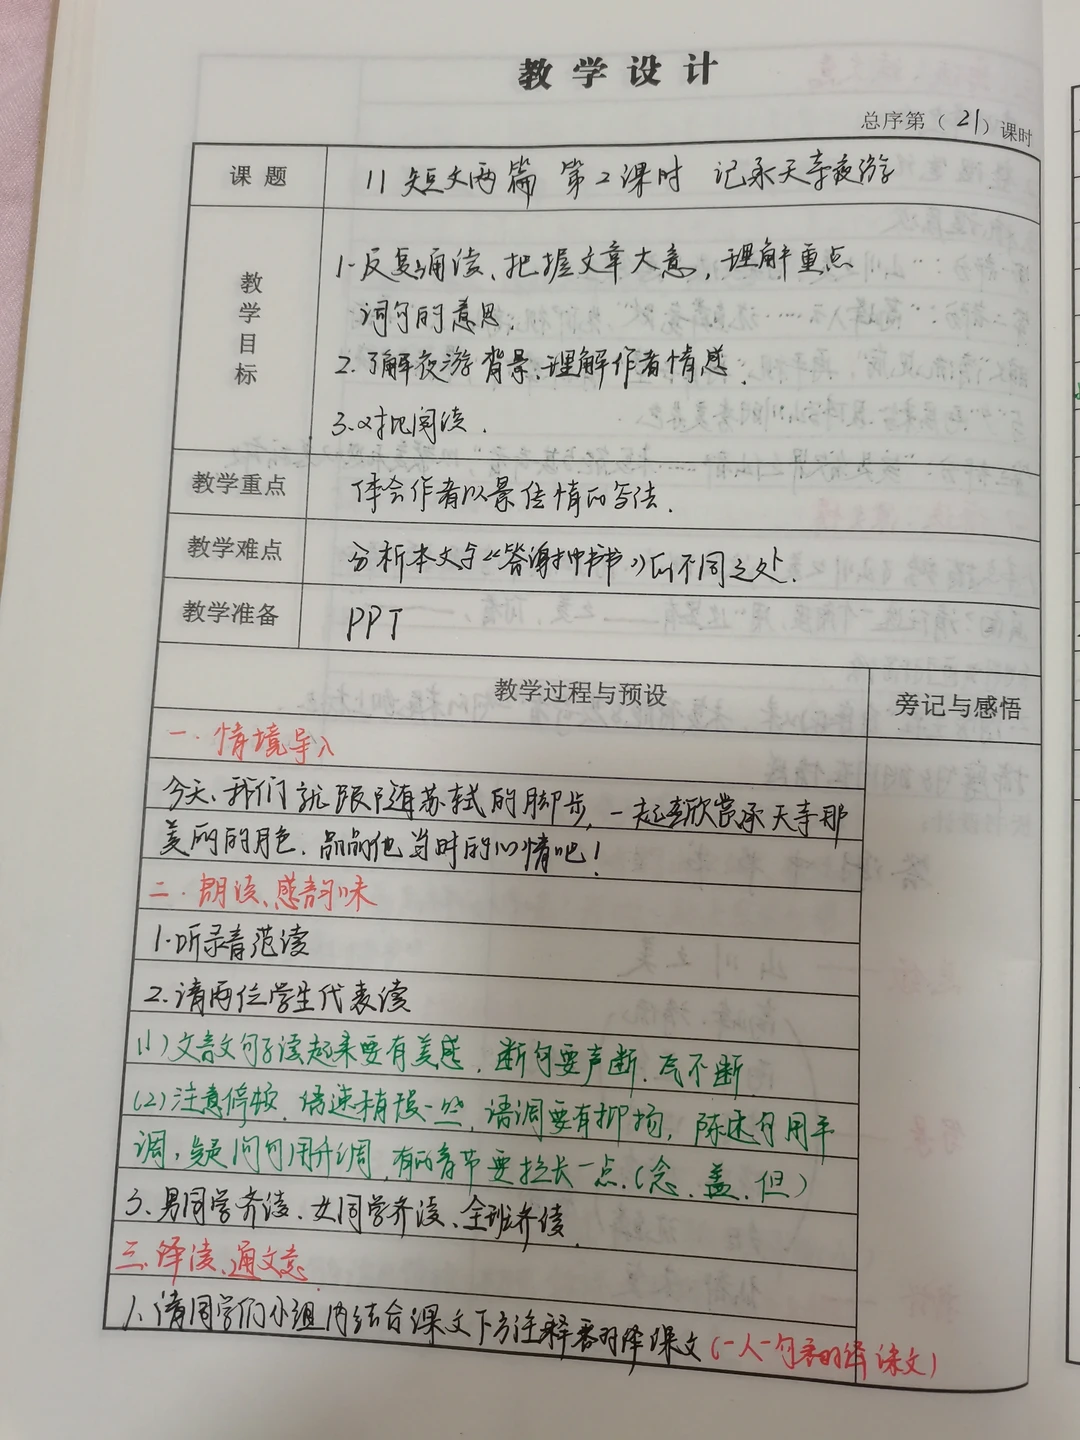 教学设计
总序第（21）课时
课题 11 短文两篇 第2课时 记承天寺夜游
教学目标
1.反复诵读、把握文章大意，理解重点
词句的意思.
2.了解夜游背景、理解作者情感.
3.对比阅读.
教学重点 体会作者以景传情的写法.
教学难点 分析本文与《答谢中书书》的不同之处.
教学准备 PPT
教学过程与预设 旁记与感悟
一.情境导入
今天、我们就跟随苏轼的脚步，一起去欣赏承天寺那
美丽的月色、品品他当时的心情吧！
二.朗读、感韵味
1.听录音范读
2.请两位学生代表读
(1)文言文句子读起来要有美感，断句要声断、气不断.
(2)注意停顿、语速稍慢一些，语调要有抑扬，陈述句用平
调，疑问句用升调，有的音节要拉长一点.(念、盖、但)
3、男同学齐读、女同学齐读、全班齐读.
三.译读、通文意
1、请同学们小组内结合课文下方注释翻译课文(一人一句翻译课文)